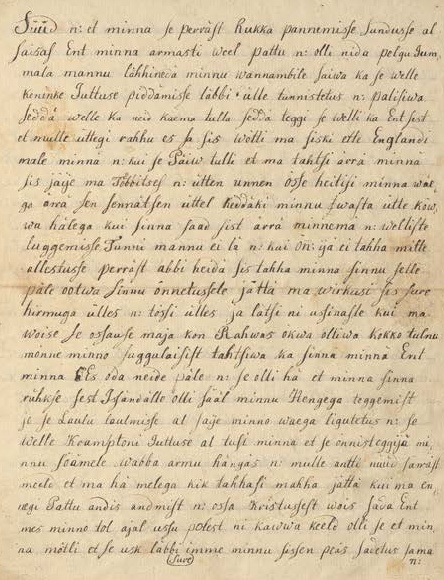 Süüd n: et minna se perräst hukka pannemisse sundusse al
saisas Ent minna armasti weel pattu n: olli nida pelgu Jum
mala mannu lähhineda minnu wannambile saiwa ka se welle
keninke Juttuse piddämisse läbbi ülle tunnistetus n: palsiwa
sedda welle ka neid kaema tulla sedda teggi se welli ka Ent sist
et mulle üttegi rahhu es sa sis wötti ma siski ette Englandi
male minnä n: kui se Päiw tulli et ma tahtsi ärrä minna
sis jäije ma Többitses n: ütten unnen össe heitisi minna wae
go ärrä sen sennätsen üttel keidäki minnu wasta ütte kow
wa hälega kui sinna saad sist ärrä minnema n: wellisto
luggemisse Tunni mannu ei lä n: kui ön ijä ei tahha mitte
ollestusse perräst abbi heida sis tahha minna sinnu selle
päle ootwa sinnu önnetussele jättä ma wirkusi sis sure
hirmuga ülles n: tössi ülles ja lätsi ni usinaste kui ma
woise se ossause maja kon Rahwas okwa olliwa kokko tulnu
mönne minno suggulaisist tahtsiwa ka sinna minna Ent
minna Es oda neide päle n: se olli hä et minna sinna
rühkse sest Issandalle olli sääl minnu Hengega teggemist
jo se Laulu laulmisse al saije minno waega ligutetus n: se
welle Kramptoni Juttuse al tusi minna et se önnisteggija mi,
nnu söämele wabba armu hängas n: mulle antti nuid
meelo et ma hä melega kik tahhasi mahha jättä kui ma en,
negi Pattu andis andmist n: ossa Kristussest wois sada Ent
mes minno tol ajal ussu polest ni kawwa keelo olli se et min
na mötli et se usk läbbi imme minnu sissen peas säetus sama
sure n: